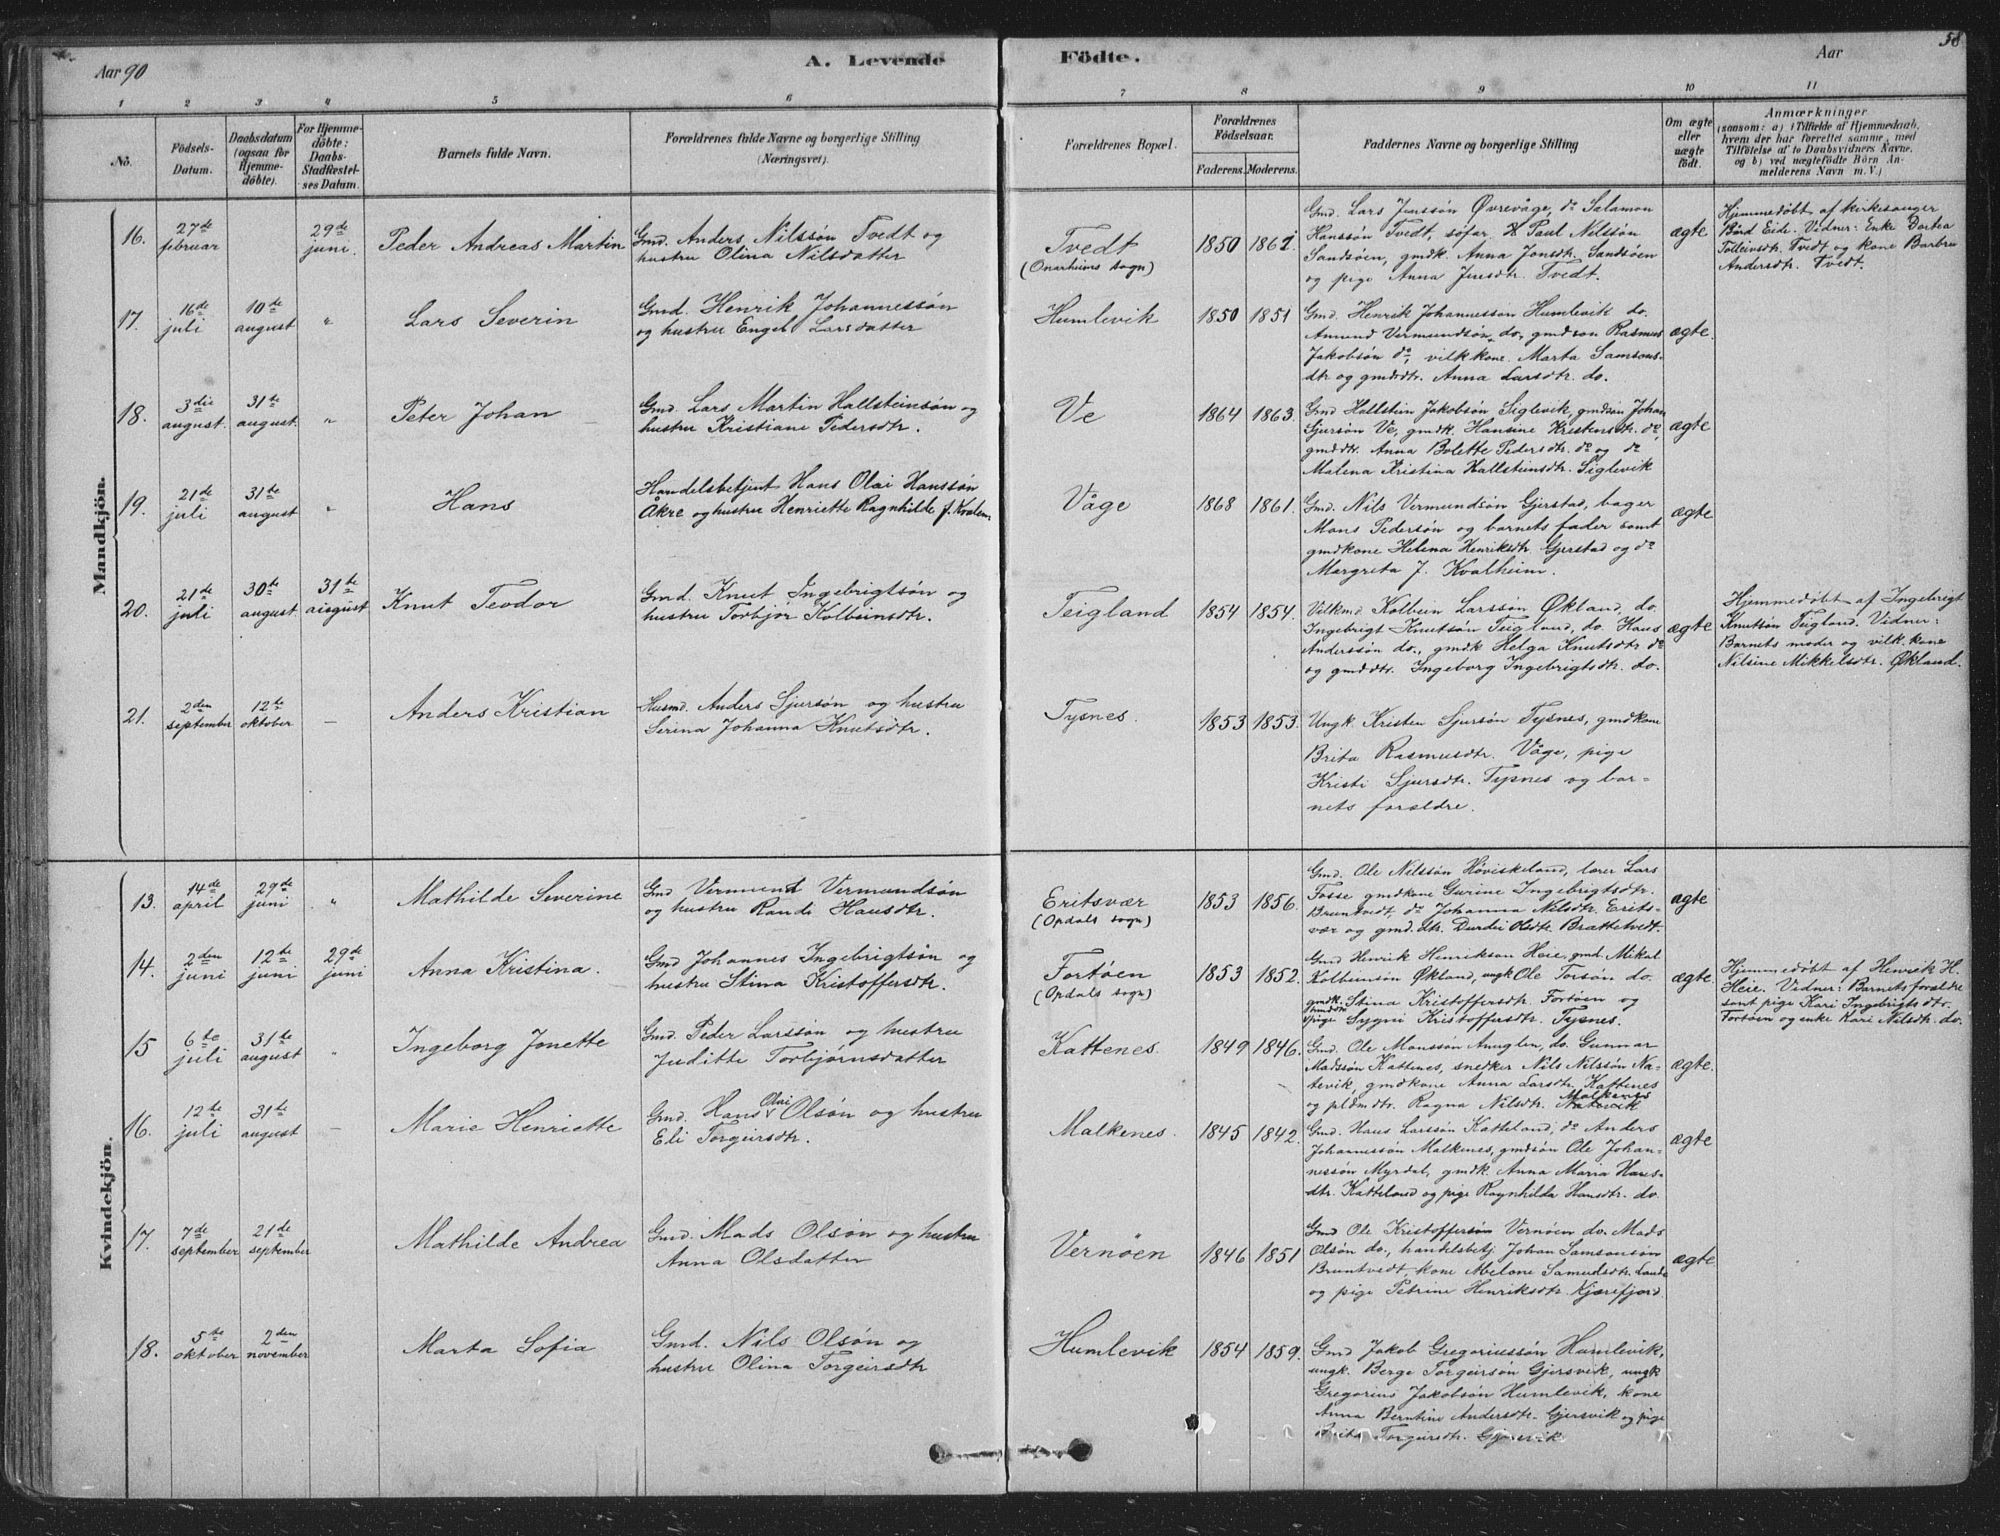 Aar 90
A. Levende
Födte.
Aar
58
1
2
3
4
5
6
7
8
9
10
11
No.
Födsels-
Datum.
Daabsdatum
(ogsaa for
Hjemme-
döbte).
For Hjemme-
döbte:
Daabs-
Stadfæstel-
ses Datum.
Barnets fulde Navn.
Forældrenes fulde Navne og borgerlige Stilling
(Næringsvei).
Forældrenes Bopæl.
Forældrenes
Födselsaar.
Faderens.
Moderens.
Faddernes Navne og borgerlige Stilling
Om ægte
eller
uægte
født.
Anmærkninger
(saasom: a) i Tilfælde af Hjemmedaab,
hvem der har forrettet samme, med
Tilföielse af to Daabsvidners Navne,
og b) ved uægtefödte Börn An-
melderens Navn m. V.)
Mandkjön.
16.
27de
februar
29de
juni
Peder Andreas Martin
Gmd. Anders Nilssøn Tvedt og
hustru Olina Nilsdatter
Tvedt
(Onarheims sogn)
1850
1862
Gmd. Lars Jenssøn Øvrevåge, do Salamon
Hanssøn Tvedt, søfar. H Paul Nilssøn
Sandsøen, gmdk. Anna Jonsdtr. Sandsøen
og pige Anna Jensdtr. Tvedt.
ægte
Hjemmedøbt af kirkesanger
Bård Eide. Vidner: Enke Dortea
Tolleivsdtr. Tvedt og kone Barbru
Andersdtr. Tvedt.
17.
16de
juli
10de
august
"
Lars Severin
Gmd. Henrik Johannessøn
og hustru Engel Larsdatter
Humlevik
1850
1851
Gmd. Henrik Johannessøn Humlevik do.
Amund Vermundsøn do, gmdsøn Rasmus
Jakobsøn do, vilkkone Marta Samsons-
dtr og gmdsdtr. Anna Larsdtr. do.
ægte.
18.
3die
august.
31te
august.
"
Peter Johan
Gmd. Lars Martin Hallsteinsøn og
hustru Kristiane Pedersdtr.
Ve
1864
1863.
Gmd Hallstein Jakobsøn Siglevik, gmdsøn Johan
Sjursøn Ve, gmdk. Hansine Kristensdtr. do,
gmddtr. Anna Bolette Pedersdtr. do og do
Malena Kristina Hallsteinsdtr. Siglevik
ægte
19.
21de
juli
31te
august
"
Hans
Handelsbetjent Hans Olai Hanssøn
Åkre og hustru Henriette Ragnhilde f. Kvalem
Våge
1868
1861.
Gmd. Nils Vermundsøn Gjerstad, bager
Mons Pedersøn og barnets fader samt
gmdkone Helena Henriksdtr. Gjerstad og do
Margreta J. Kvalheim.
ægte
20.
21de
juli
30te
august
31te
august
Knut Teodor
Gmd. Knut Ingebrigtsøn og
hustru Torbjør Kolbeinsdtr.
Teigland
1854
1854.
Vilkmd Kolbein Larssøn Økland, do.
Ingebrigt Knutsøn Teigland, do. Hans
Anderssøn do., gmdk Helga Knutsdtr do
og gmddtr. Ingeborg Ingebrigtsdtr. do.
ægte
Hjemmedøbt af Ingebrigt
Knutsøn Teigland. Vidner:
Barnets moder og vilk.kone
Nilsine Mikkelsdtr. Økland.
21.
2den
september
12te
oktober
—
Anders Kristian
Husmd. Anders Sjursøn og hustru
Serina Johanna Knutsdtr.
Tysnes.
1853
1853.
Ungk. Kristen Sjursøn Tysnes, gmdkone
Brita Rasmusdtr. Våge, pige
Kristi Sjursdtr. Tysnes og bar-
nets forældre.
Kvindekjön.
13.
14de
april
29de
juni
"
Mathilde Severine
Gmd Vermund Vermundsøn
og hustru Randi Hansdtr.
Eritsvær
(Opdals sogn)
1853
1856.
Gmd. Ole Nilssøn Høviskeland, lærer Lars
Fosse gmdkone Gurine Ingebrigtsdtr.
Bruntvedt do Johanna Nilsdtr. Erits-
vær og gmd.dtr. Durdei Olsdtr. Brattetvedt.
ægte
14.
2den
juni
12te
juni
29de
juni
Anna Kristina.
Gmd Johannes Ingebrigtsøn og
hustru Stina Kristoffersdtr.
Fortøen
(Opdals sogn)
1853
1852.
Gmd Henrik Henrikson Heie, gmd Mikal
Kolbeinsøn Økland, ungk Ole Torsøn do.
gmdk. Stina Kristoffersdtr. Fortøen og
pige Sygni Kristoffersdtr. Tysnes.
ægte
Hjemmedøbt af Henrik H.
Heie. Vidner: Barnets forældre
samt pige Kari Ingebrigtsdtr.
Fortøen og enke Kari Nilsdtr. do.
15
6te
juli
31te
august
"
Ingeborg Jonette
Gmd. Peder Larssøn og hustru
Juditte Torbjørnsdatter
Kattenes.
1849
1846.
Gmd. Ole Monssøn Anuglen, do. Gunnar
Madssøn Kattenes, snedker Nils Nilssøn Na-
tevik, gmdkone Anna Larsdtr. Kattenes
og plsmdtr. Ragna Nilsdtr. Natevik
Malkenes
ægte.
16.
12te
juli
31te
august
—
Marie Henriette
Gmd. Hans Olai Olsøn og hustru
Eli Torgeirsdtr.
Malkenes.
1845
1842.
Gmd. Hans Larssøn Katteland, do Anders
Johannessøn Malkenes, gmdsøn Ole Johan-
nessøn Myrdal, gmdk. Anna Maria Hans-
dtr. Katteland og pige Ragnhilda Hansdtr. do.
ægte
17.
7de
september
21de
september
Mathilde Andrea
Gmd. Mads Olsøn og hustru
Anna Olsdatter
Vernøen
1846
1851
Gmd Ole Kristoffersøn Vernøen do. Mads
Olsøn do., handelsbetj. Johan Samsonsøn
Bruntvedt, kone Melone Samuelsdtr. Lande
og pige Petrine Henriksdtr. Kjærefjord.
ægte
18.
5te
oktober
2den
november
Marta Sofia
Gmd. Nils Olsøn og
hustru Olina Torgeirsdtr
Humlevik
1854
1859.
Gmd Jakob Gregoriussøn Humlevik,
ungk. Berge Torgeirsøn Gjersvik, ungk
Gregorius Jakobsøn Humlevik, kone
Anna Berntine Andersdtr. Gjersvik og pige
Brita Torgeirsdtr. Gjersvik